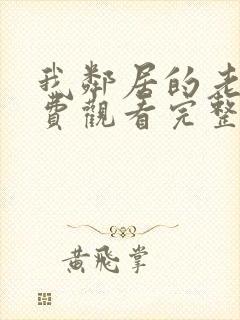 我鄰居的老
費觀看完整
黃飛掌